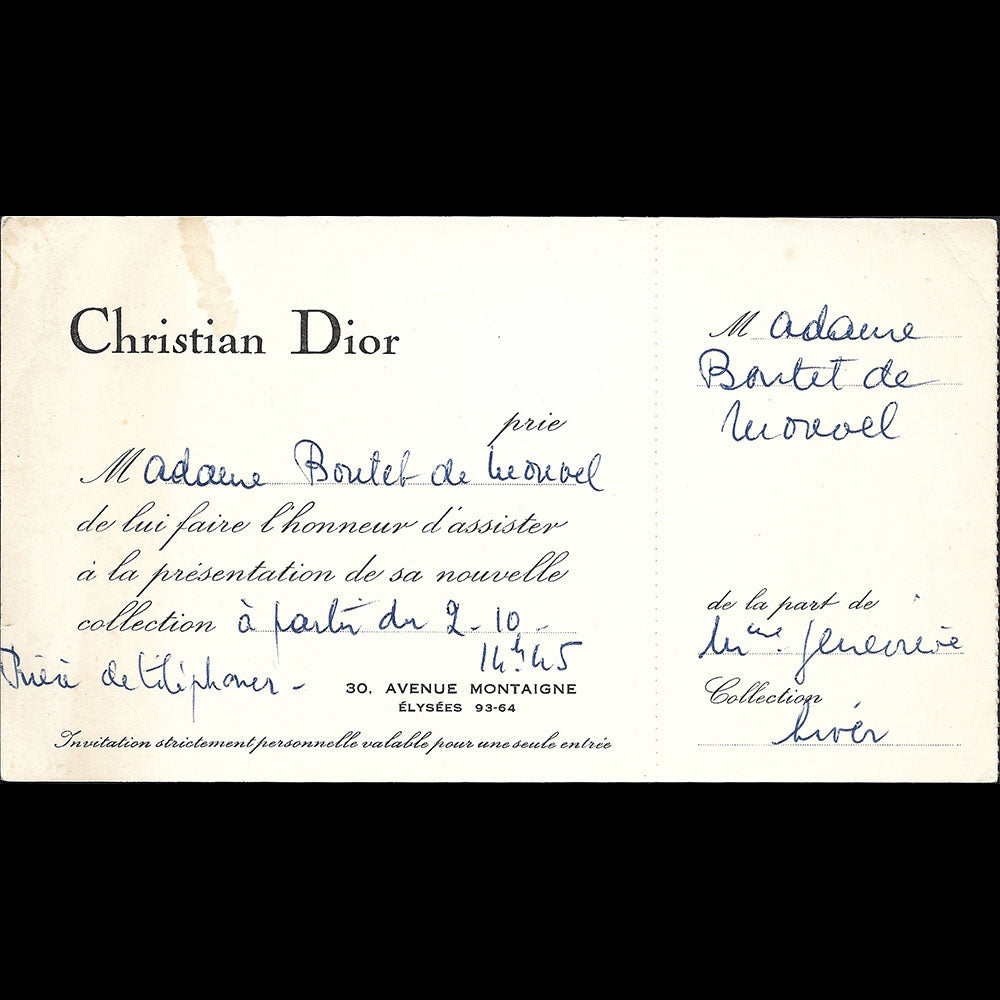 Christian Dior
prie
Madame Boutet de Monvel
de lui faire l'honneur d'assister
à la présentation de sa nouvelle
collection à partir du 2-10-
14h45
Prière de téléphoner -
30, AVENUE MONTAIGNE
ÉLYSÉES 93-64
Invitation strictement personnelle valable pour une seule entrée
Madame
Boutet de
Monvel
de la part de
Mme. Geneviève
Collection
hiver